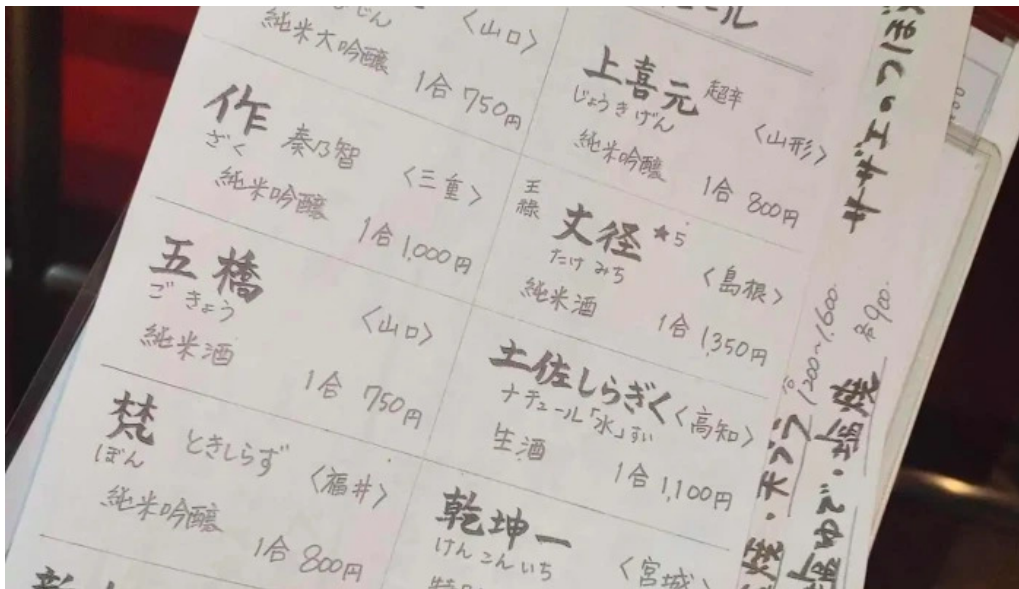 純米大吟醸
〈山口〉
1合 750円
作 奏乃智
ざく
〈三重〉
純米吟醸
1合 1,000円
五橋
ごきょう
〈山口〉
純米酒
1合 750円
梵 ときしらず
ぼん
〈福井〉
純米吟醸
1合 800円
ール
上喜元 超辛
じょうきげん
〈山形〉
純米吟醸
1合 800円
王祿
丈径 ★5
たけみち
〈島根〉
純米酒
1合 1,350円
土佐しらぎく 〈高知〉
ナチュール「水」すい
生酒
1合 1,100円
乾坤一
けんこんいち
〈宮城〉
1200〜1,600.
各900.